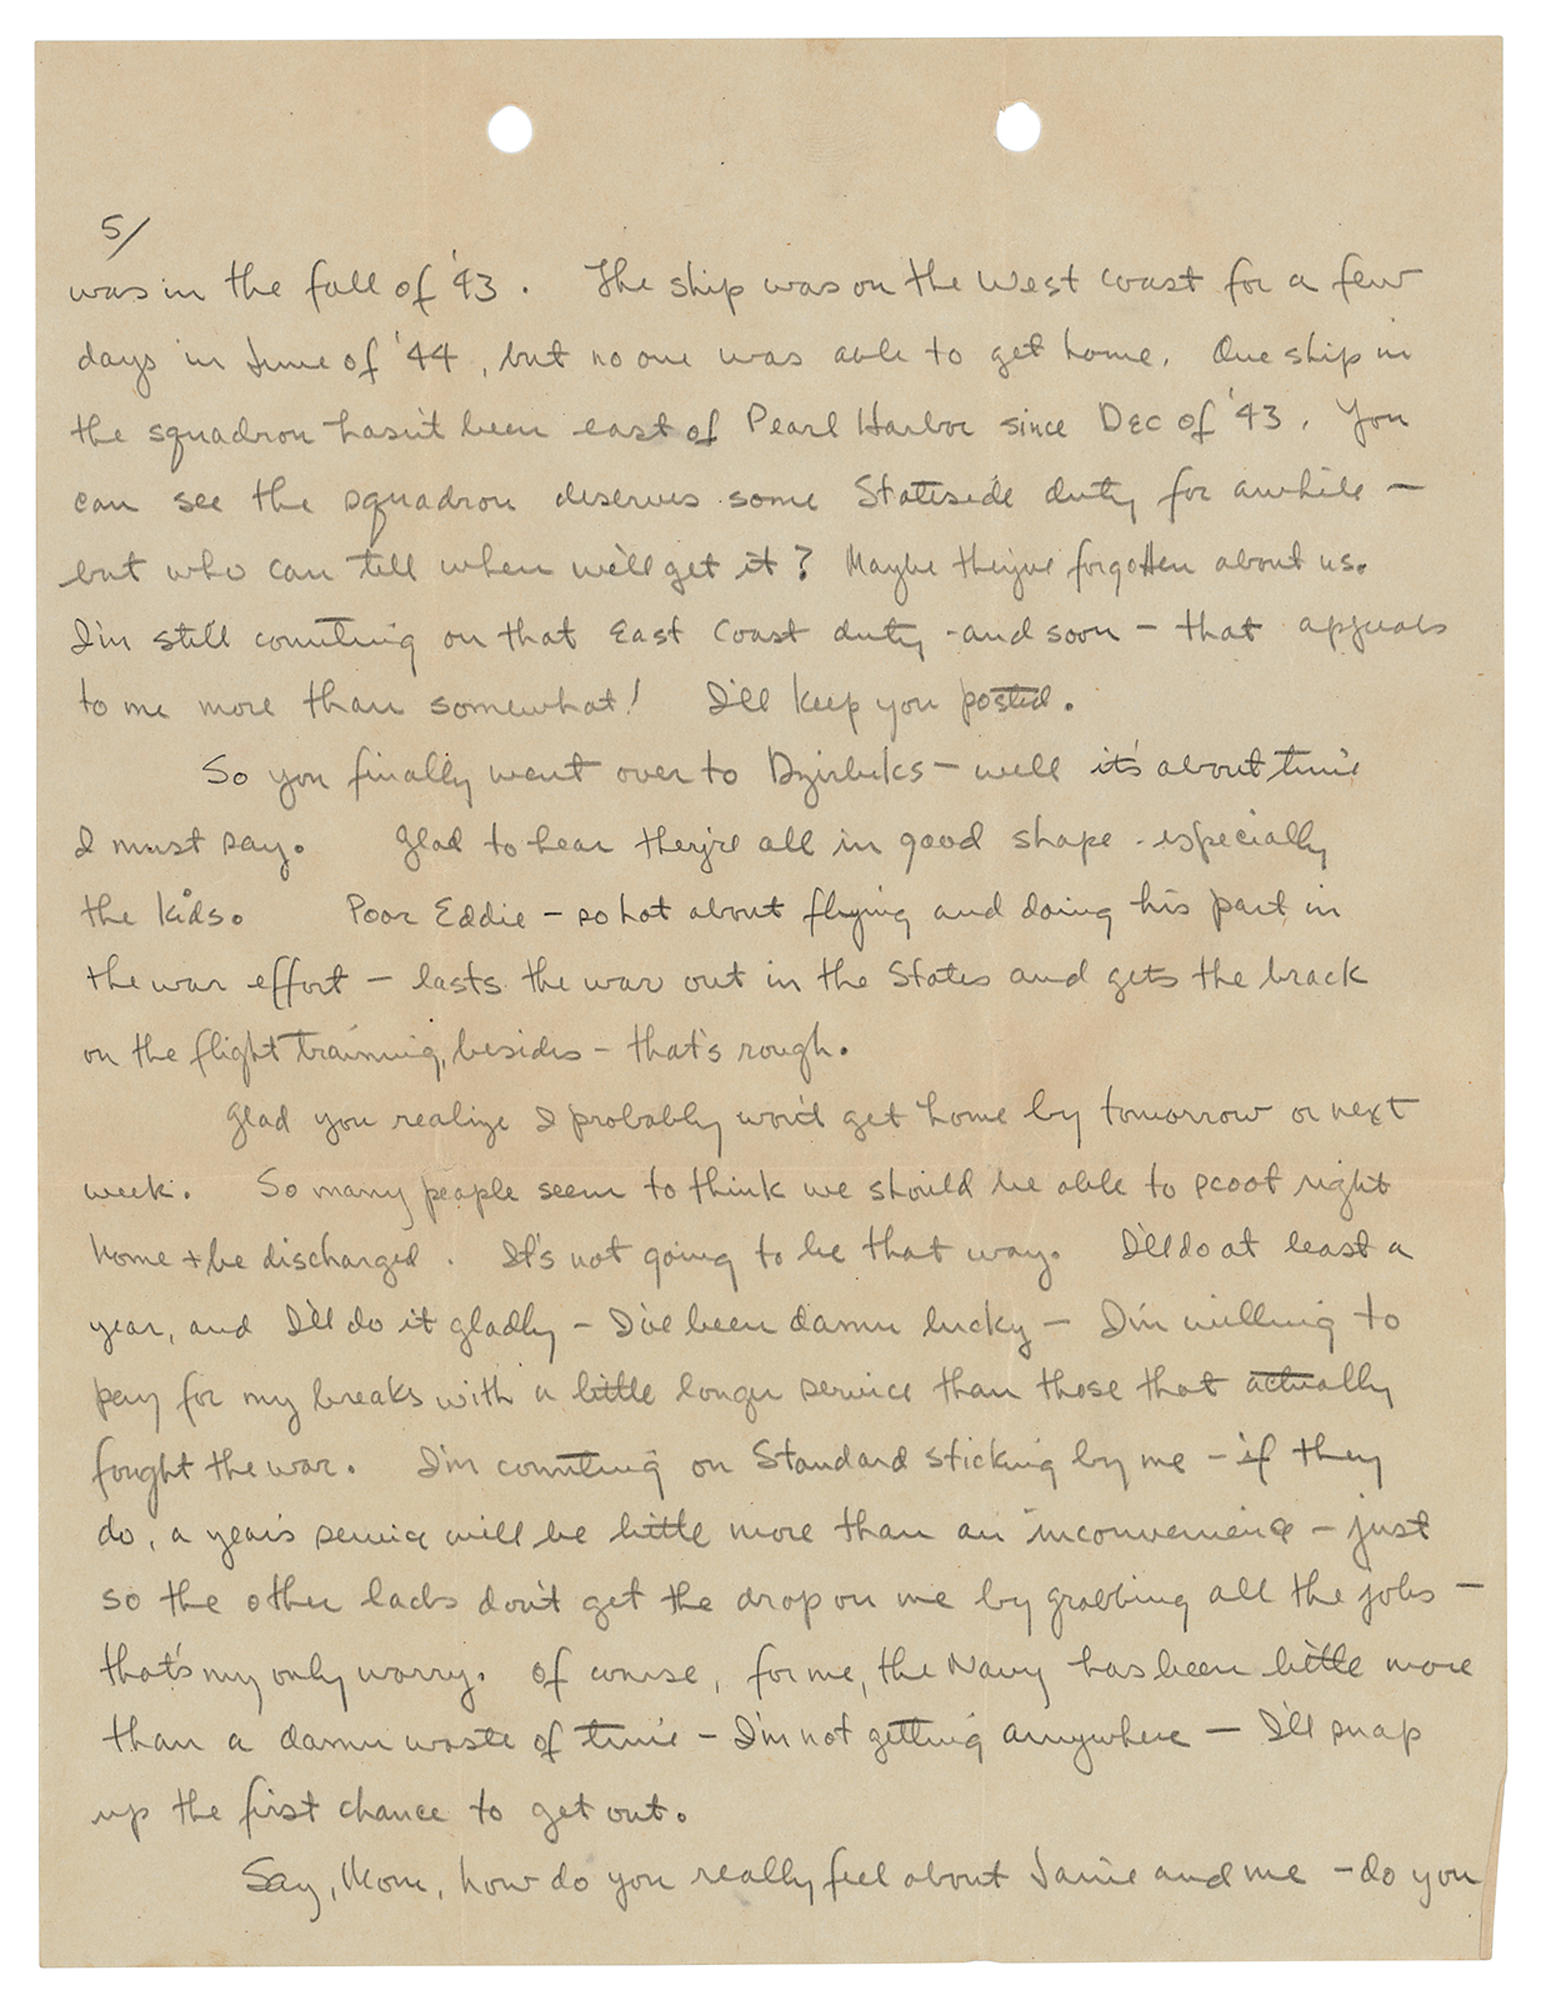 5/
was in the fall of '43. The ship was on the West Coast for a few
days in June of '44, but no one was able to get home. One ship in
the squadron hasn't been east of Pearl Harbor since Dec of '43. You
can see the squadron deserves some Stateside duty for awhile —
but who can tell when we'll get it? Maybe they've forgotten about us.
I'm still counting on that East Coast duty - and soon - that appeals
to me more than somewhat! I'll keep you posted.
So you finally went over to — well it's about time
I must say. Glad to hear they're all in good shape - especially
the kids. Poor Eddie - so hot about flying and doing his part in
the war effort - lasts the war out in the States and gets the brack
on the flight training, besides - that's rough.
Glad you realize I probably won't get home by tomorrow or next
week. So many people seem to think we should be able to scoot right
home + be discharged. It's not going to be that way. I'll do at least a
year, and I'll do it gladly - I've been damn lucky - I'm willing to
pay for my breaks with a little longer service than those that actually
fought the war. I'm counting on Standard sticking by me - if they
do, a year's service will be little more than an inconvenience - just
so the other lads don't get the drop on me by grabbing all the jobs -
that's my only worry. Of course, for me, the Navy has been little more
than a damn waste of time - I'm not getting anywhere - I'll snap
up the first chance to get out.
Say, Mom, how do you really feel about Janie and me - do you